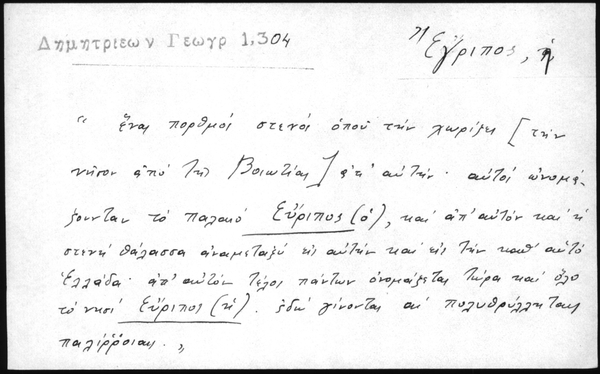 Δημητριεων Γεωγρ 1,304
Ἔγριπος, ἡ
“ ἕνας πορθμός στενός ὁποῦ τήν χωρίζει [ τήν
νῆσον ἀπό τῆς Βοιωτίας ] ἀπ' αὐτήν · αὐτός ὠνομά-
ζονταν τό παλαιό Εὔριπος (ὁ), καί ἀπ' αὐτόν καί ἡ
στενή θάλασσα ἀναμεταξύ εἰς αὐτήν καί εἰς τήν καθ' αὐτό
Ἑλλάδα · ἀπ' αὐτόν τέλος πάντων ὀνομάζεται τώρα καί ὅλο
τό νησί Εὔριπος (ἡ) . ἐδῶ γίνονται αἱ πολυθρύλληταις
παλίρροιαις . „